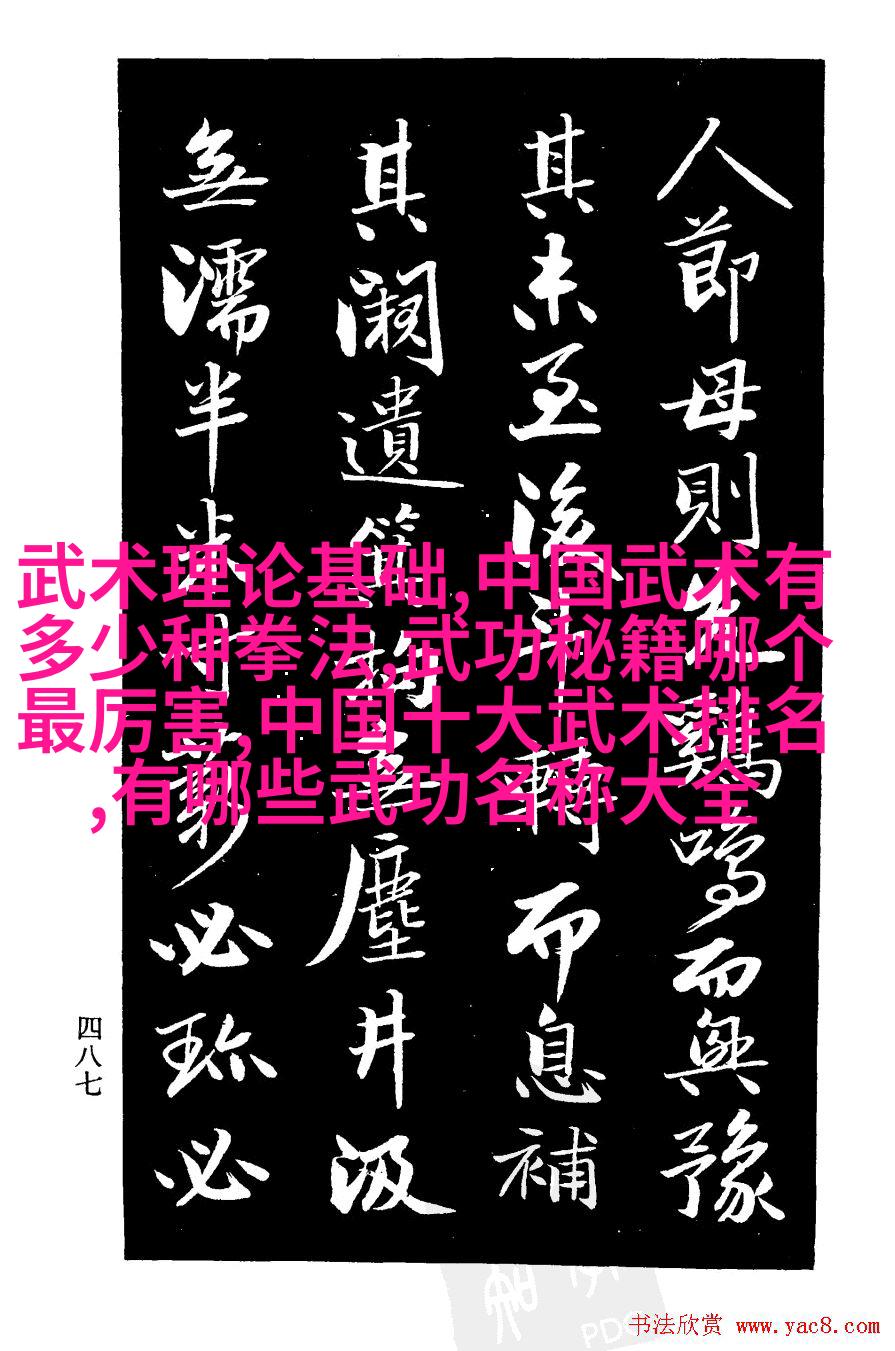 人節母則先雞鳴而興豫
其未至淚斗轉而息補
其闕遺無塵井汲
無濡半必珎必
武术理论基础,中国武术有
多少种拳法,武功秘籍哪个
最厉害,中国十大武术排名
,有哪些武功名称大全
四八七
书法欣赏 www.yac8.com